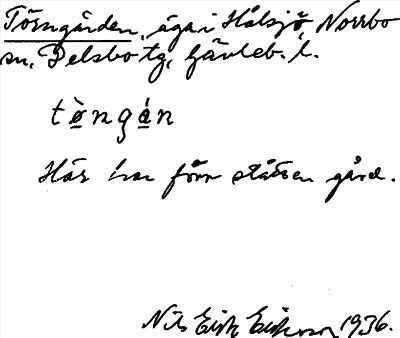 Törngården, äga i Hålsjö, Norrbo
sn, Delsbo tg, Gävleb. l.
tø̀ngán
Här har förr stått en gård.
Nils Erik Eriksson 1936.